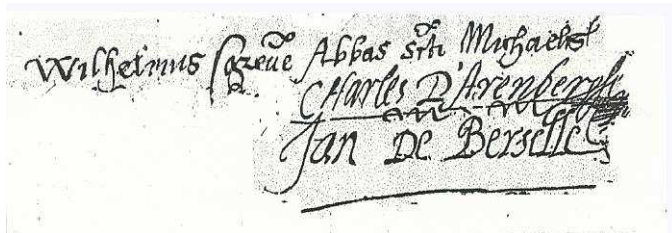 Wilhelmus Abbas Scti Michaelis
CHarles D'Arenbergh
Jan De Berselle